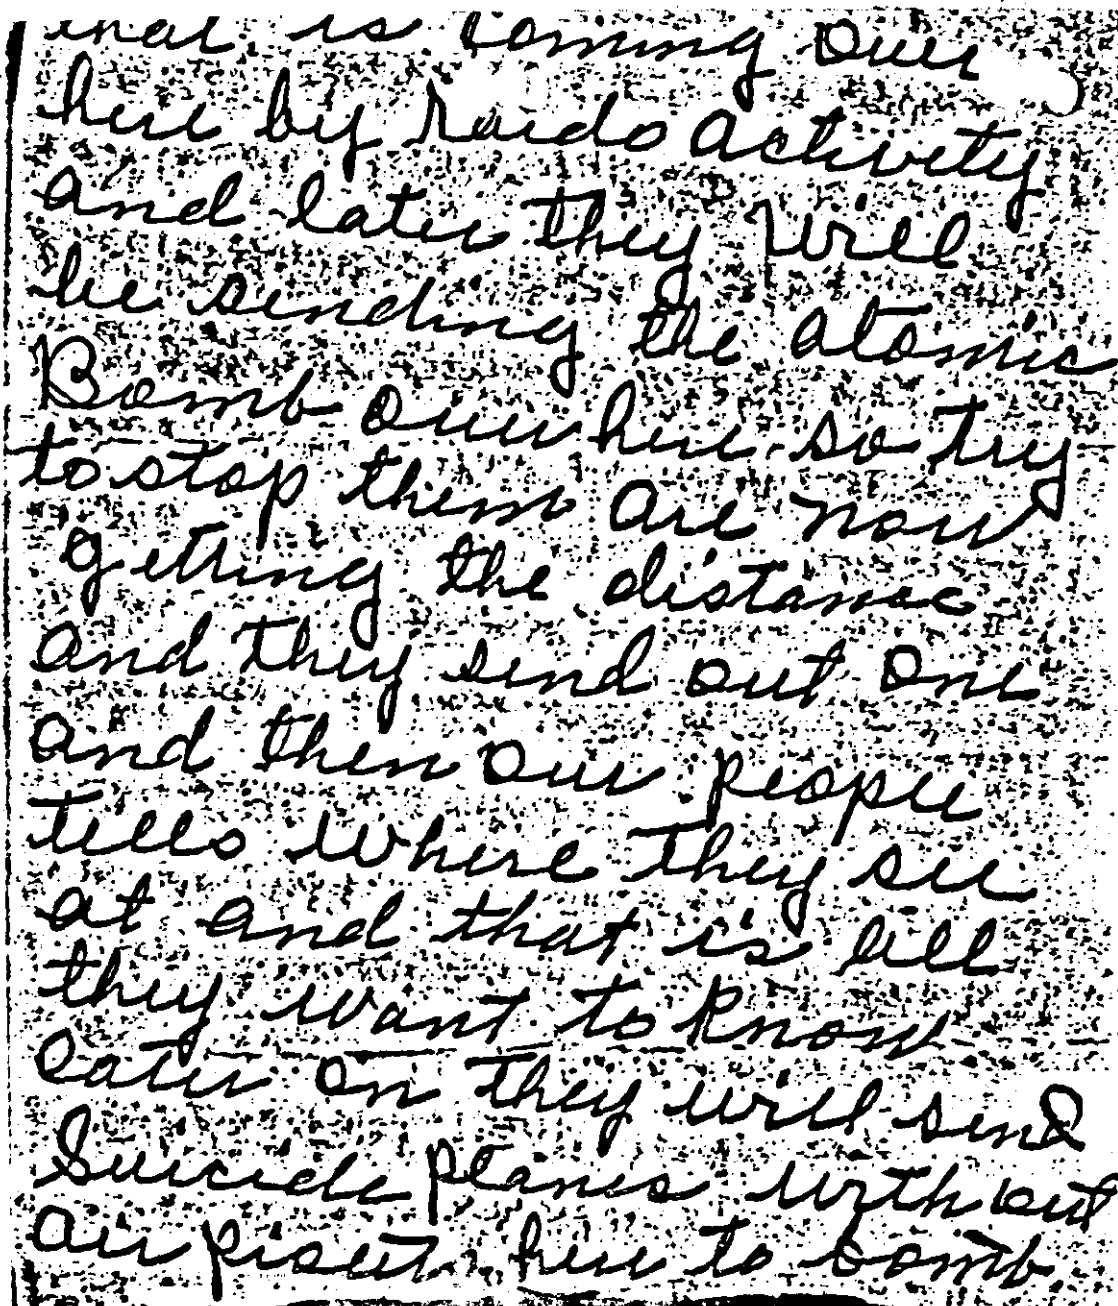 that is coming over
here by Raido activity
and later they will
be sending the atomic
Bomb over here so try
to stop them are now
getting the distance
and they send out one
and then our people
tells where they see
at and that is all
they want to know
Later on they will send
Suicide planes without
air here to bomb